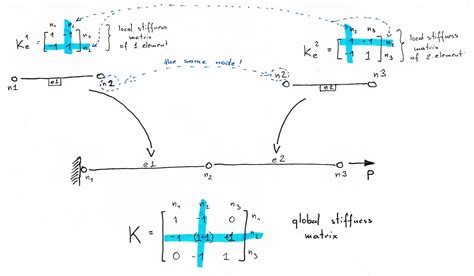 n₁ n₂
Kₑ¹ = [1 -1] n₁
[-1 1] n₂
local stiffness
matrix
of 1. element
n₂ n₃
Kₑ² = [1 -1] n₂
[-1 1] n₃
local stiffness
matrix
of 2. element
the same node!
n1 e1 n2
n2 e2 n3
e1 e2
n₁ n₂ n3 P
n₁ n₂ n₃
K = [1 -1 0] n₁
[-1 (1+1) +1] n₂
[0 -1 1] n₃
global stiffness
matrix